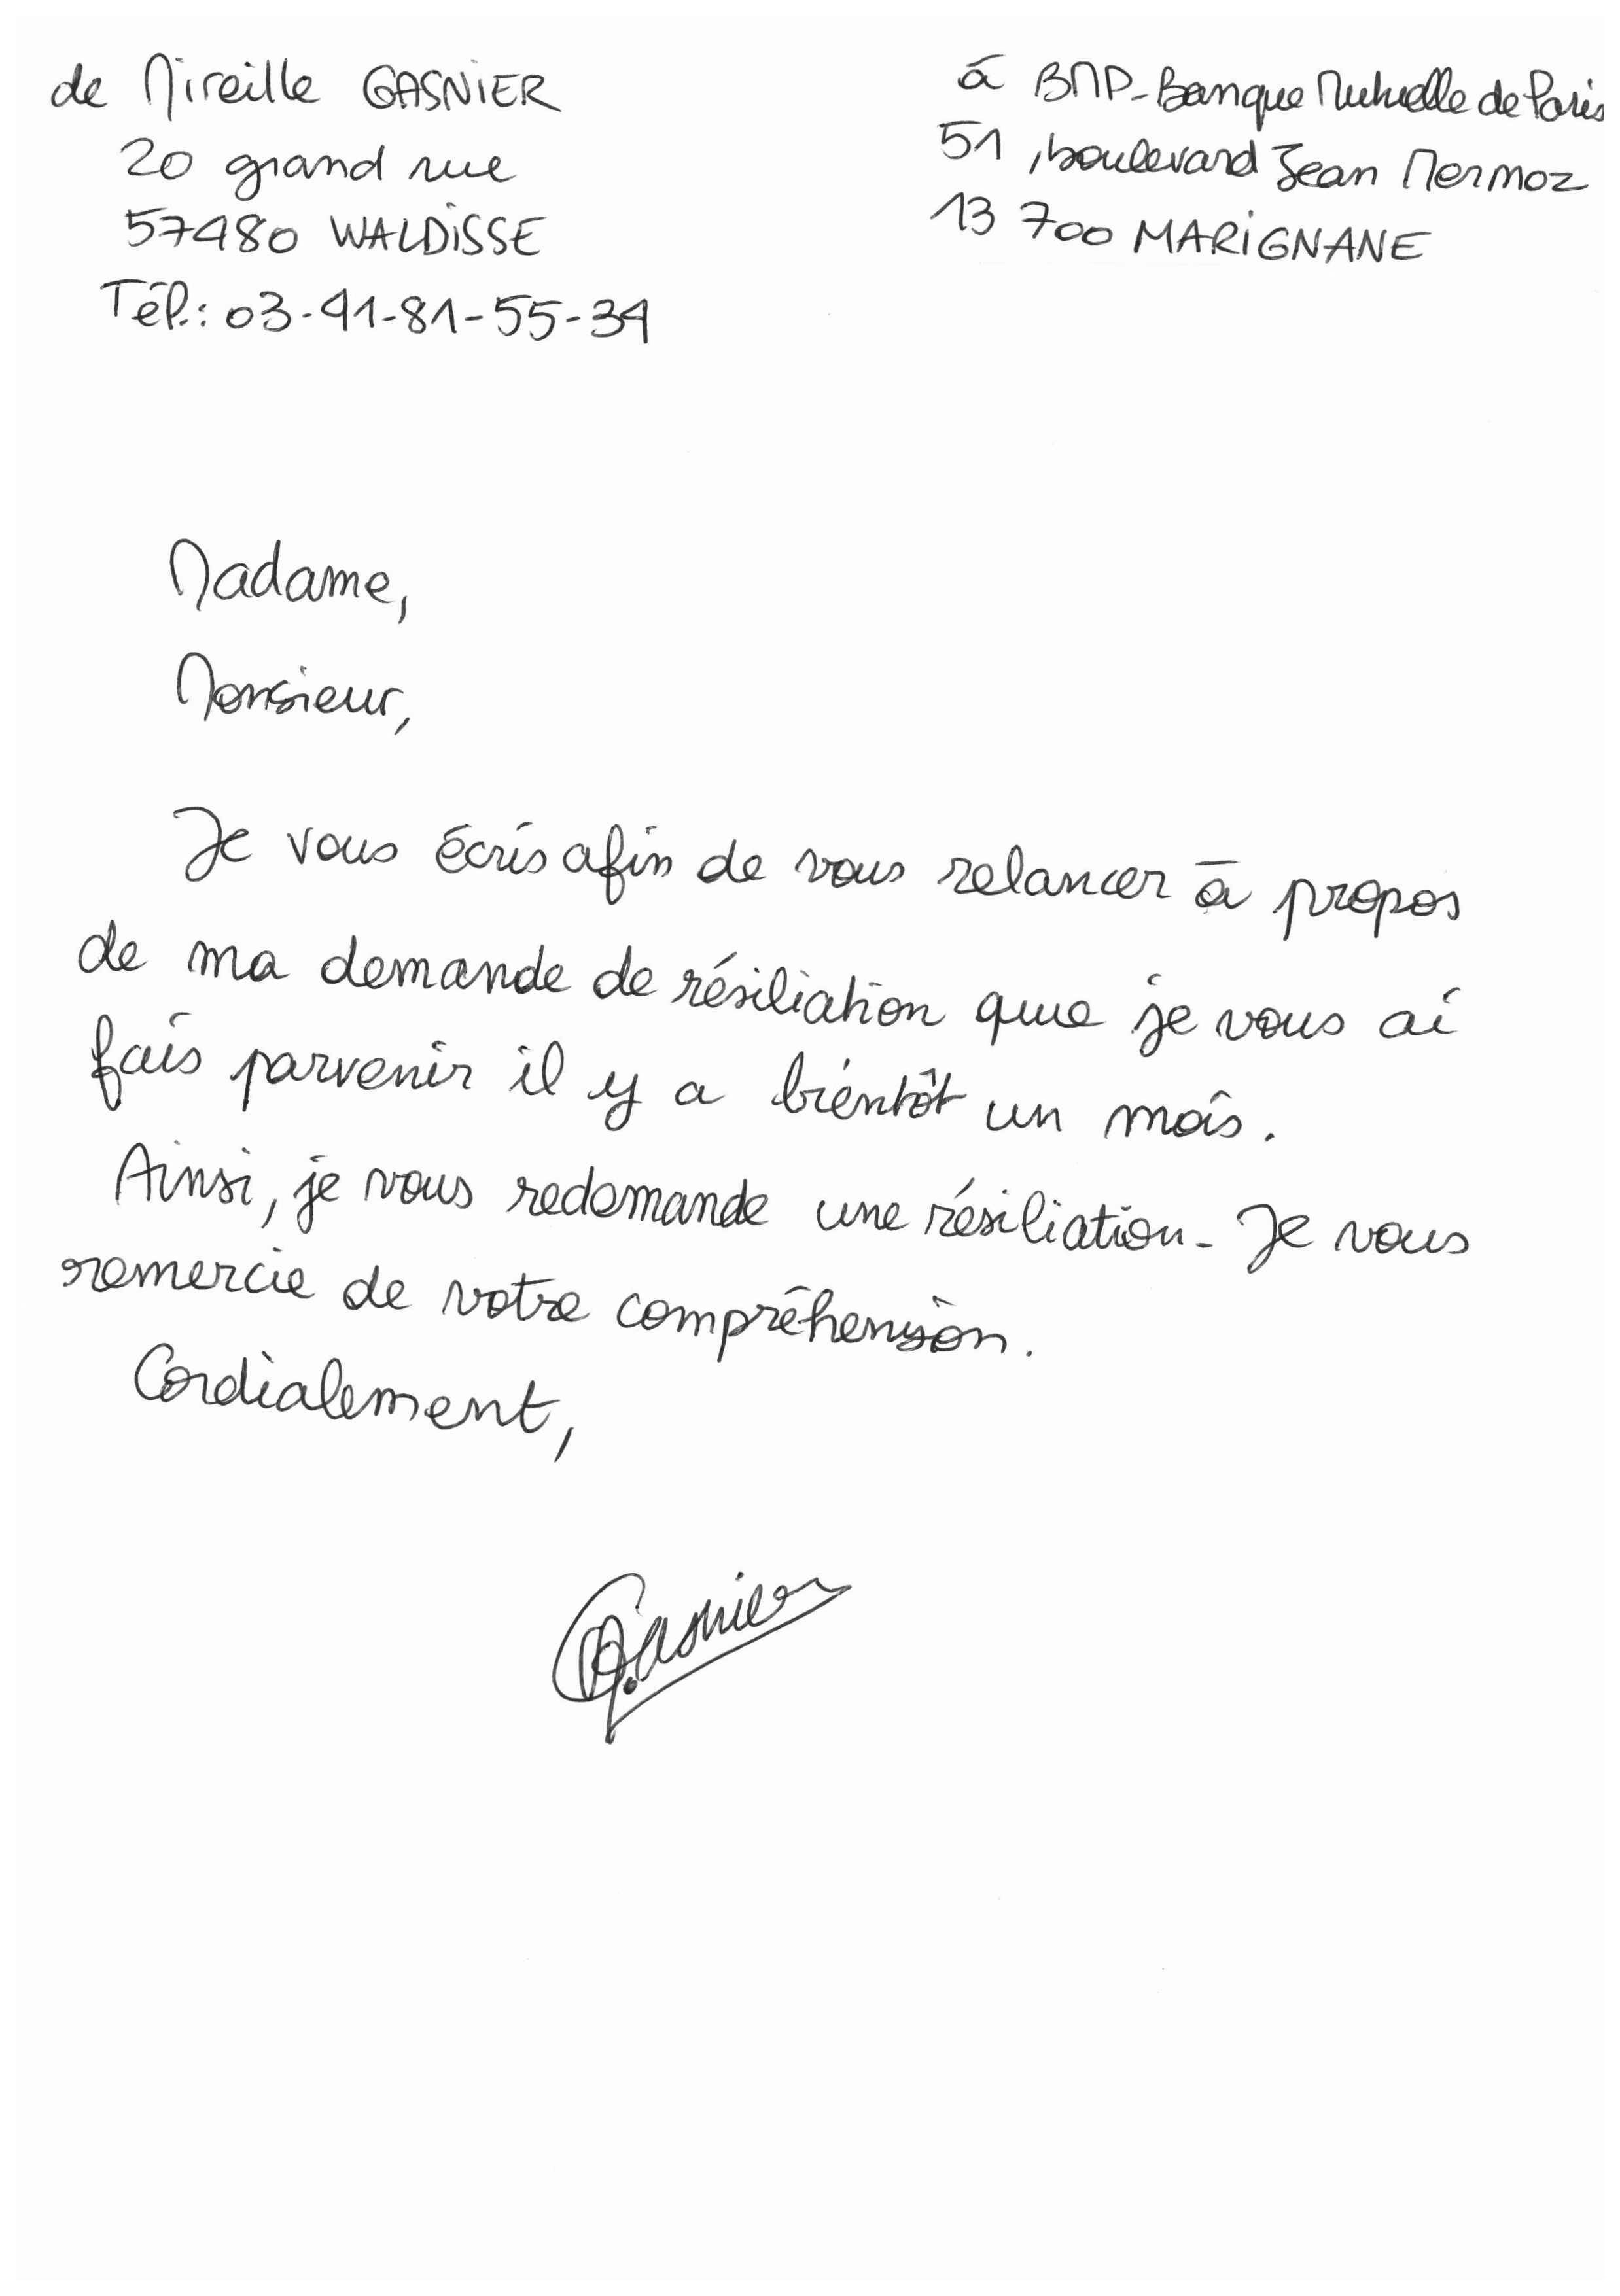 de Mireille GASNIER
20 grand rue
57480 WALDISSE
Tél.: 03-41-81-55-34
à BMP-Banque Mutuelle de Paris
51, boulevard Jean Mermoz
13 700 MARIGNANE
Madame,
Monsieur,
Je vous écris afin de vous relancer à propos
de ma demande de résiliation que je vous ai
fais parvenir il y a bientôt un mois.
Ainsi, je vous redemande une résiliation. Je vous
remercie de votre compréhension.
Cordialement,
Gasnier